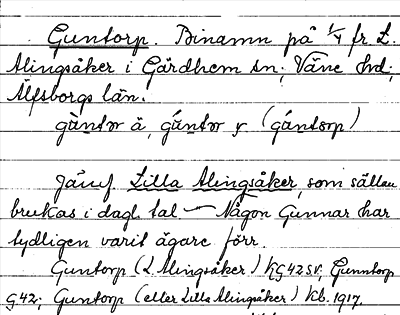 Guntorp. Binamn på 1/4 fr L.
Alingsåker i Gärdhem sn; Väne hd;
Älfsborgs län.
gùntor ä, gúntor y. (gúntorp)
Jämf. Lilla Alingsåker, som sällan
brukas i dagl. tal — Någon Gunnar har
tydligen varit ägare förr.
Guntorp (L. Alingsåker) KG42 sv. Gunntorp
G42; Guntorp (eller Lilla Alingsåker) Kb. 1917.